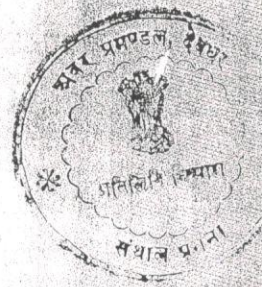 सदर प्रमण्डल, देवघर
प्रतिलिपि विभाग
संथाल